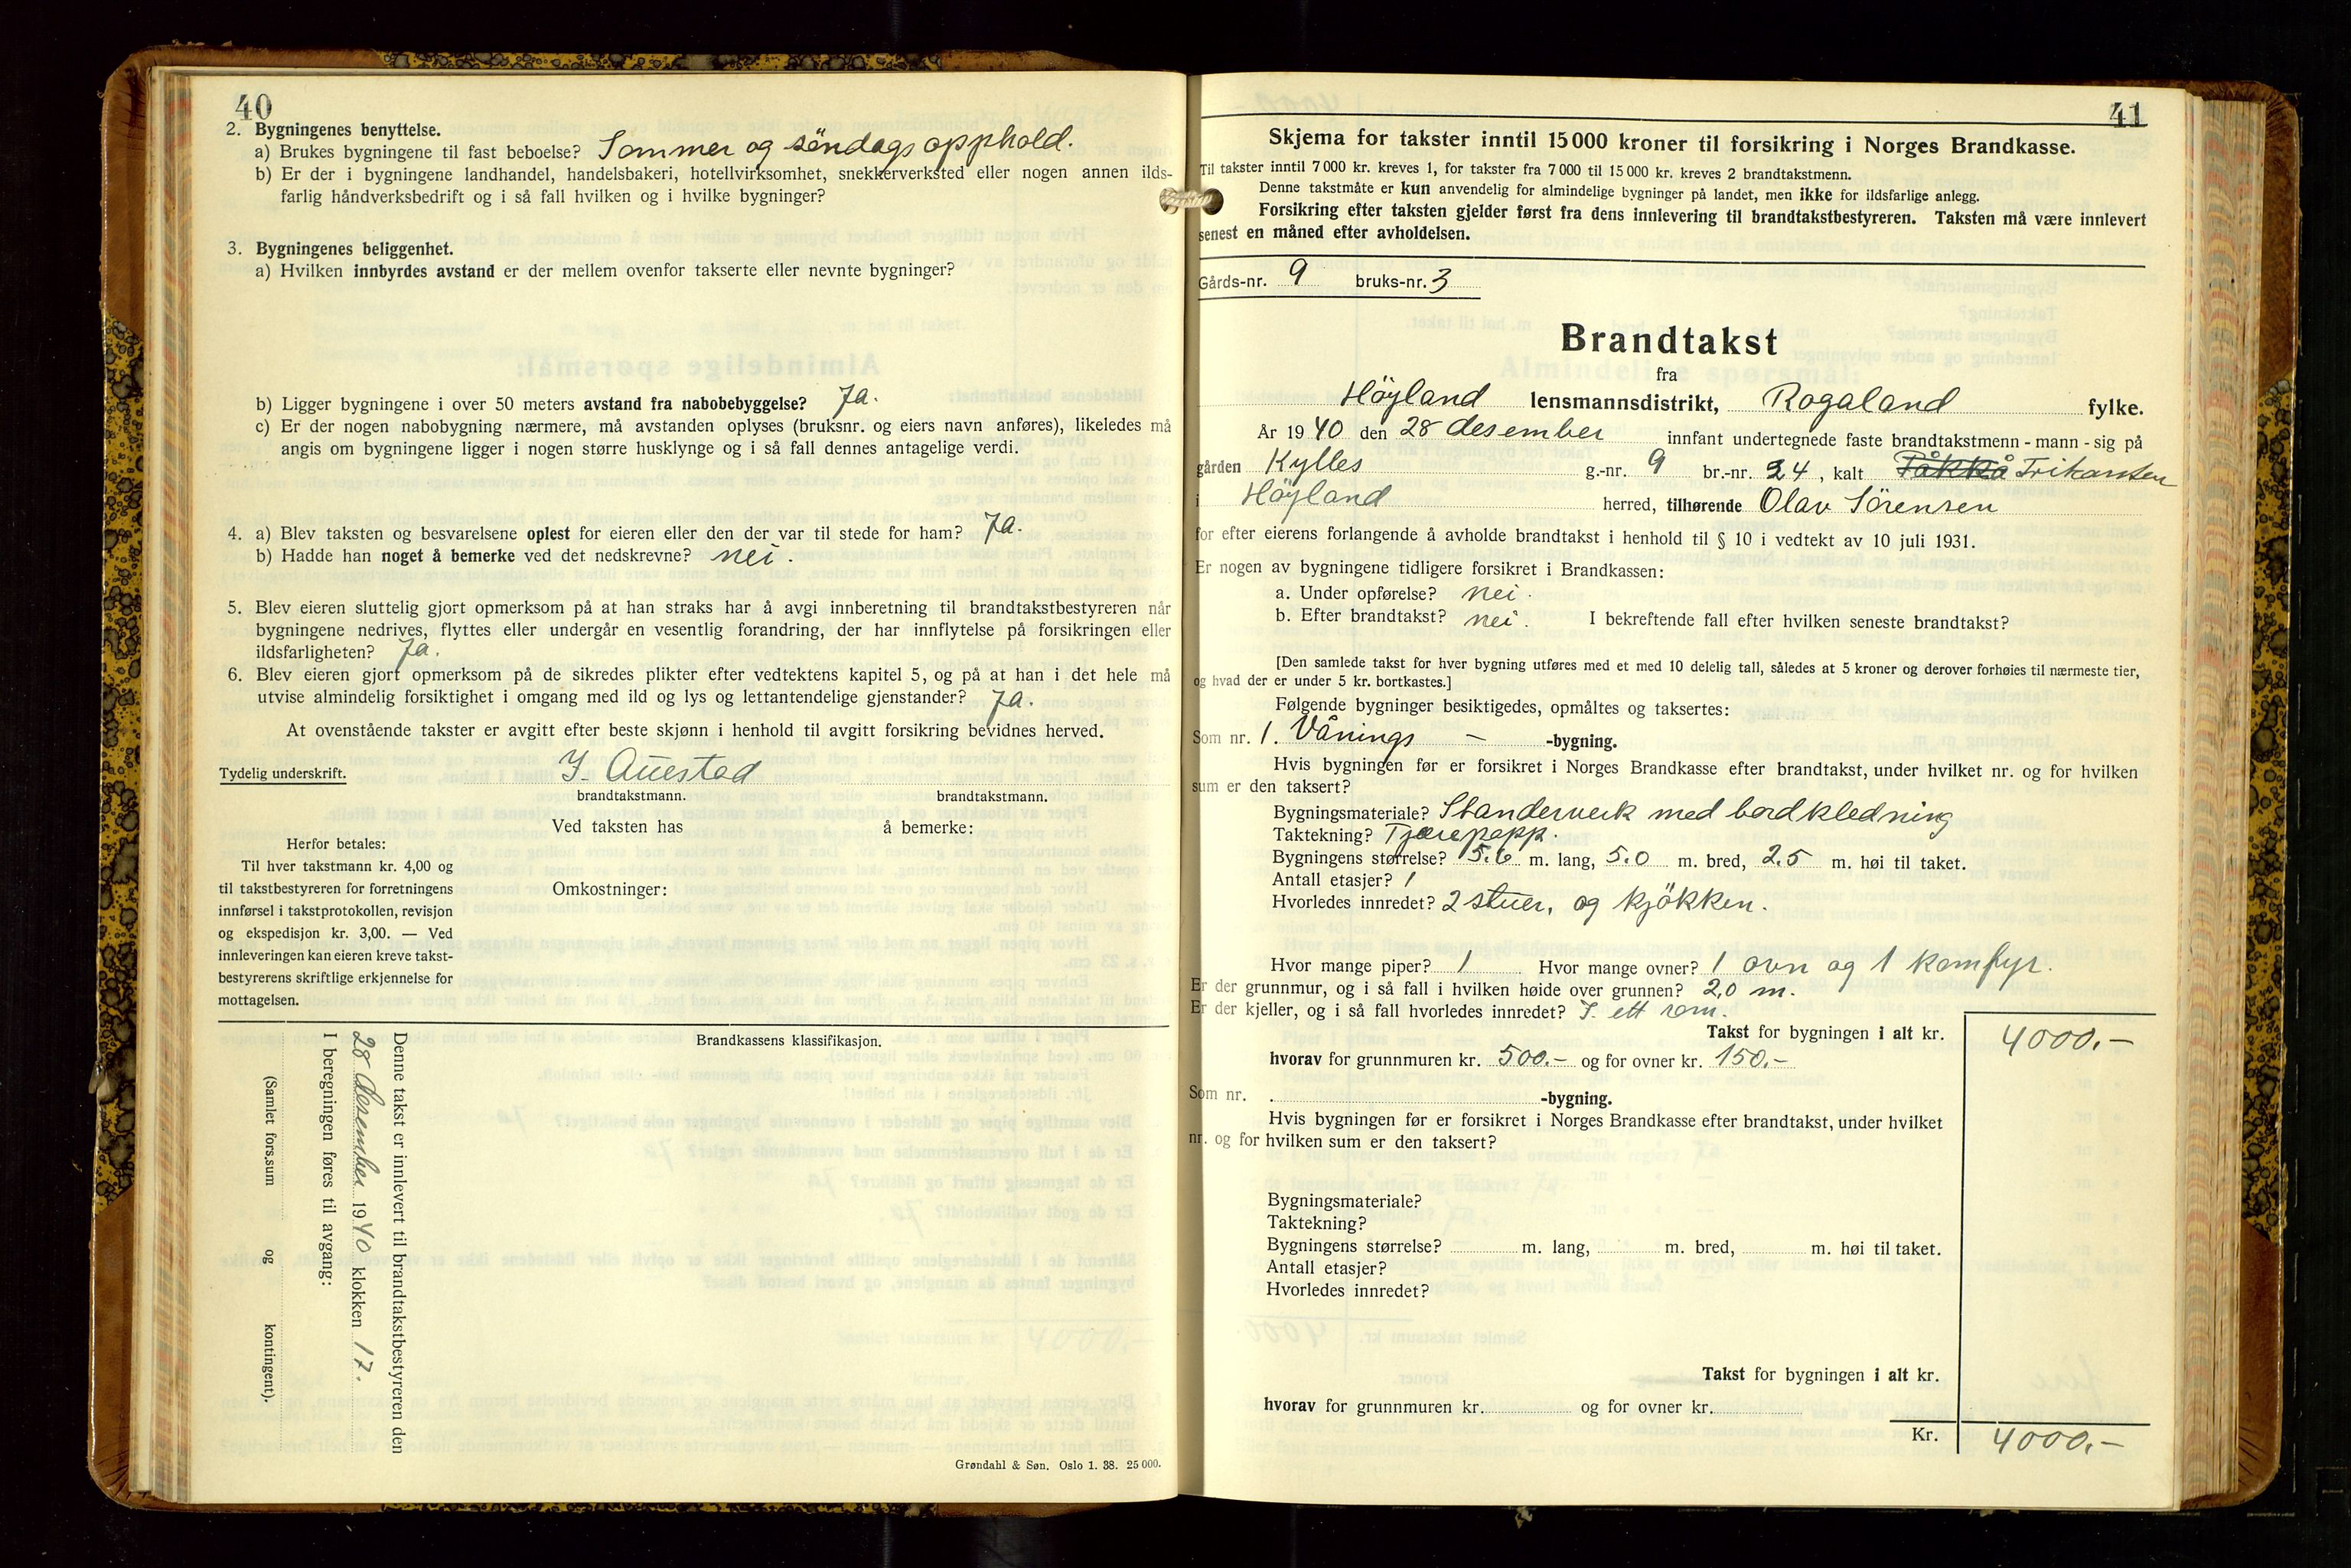 40
2. Bygningenes benyttelse.
a) Brukes bygningene til fast beboelse? Sommer og söndags opphold.
b) Er der i bygningene landhandel, handelsbakeri, hotellvirksomhet, snekkerverksted eller nogen annen ilds-
farlig håndverksbedrift og i så fall hvilken og i hvilke bygninger?
3. Bygningenes beliggenhet.
a) Hvilken innbyrdes avstand er der mellem ovenfor takserte eller nevnte bygninger?
b) Ligger bygningene i over 50 meters avstand fra nabobebyggelse? Ja.
c) Er der nogen nabobygning nærmere, må avstanden oplyses (bruksnr. og eiers navn anføres), likeledes må
angis om bygningene ligger i nogen større husklynge og i så fall dennes antagelige verdi.
4. a) Blev taksten og besvarelsene oplest for eieren eller den der var til stede for ham? Ja.
b) Hadde han noget å bemerke ved det nedskrevne? nei.
5. Blev eieren sluttelig gjort opmerksom på at han straks har å avgi innberetning til brandtakstbestyreren når
bygningene nedrives, flyttes eller undergår en vesentlig forandring, der har innflytelse på forsikringen eller
ildsfarligheten? Ja.
6. Blev eieren gjort opmerksom på de sikredes plikter efter vedtektens kapitel 5, og på at han i det hele må
utvise almindelig forsiktighet i omgang med ild og lys og lettantendelige gjenstander? Ja.
At ovenstående takster er avgitt efter beste skjønn i henhold til avgitt forsikring bevidnes herved.
Tydelig underskrift. I. Auestad
brandtakstmann. brandtakstmann.
Ved taksten has å bemerke:
Herfor betales:
Til hver takstmann kr. 4,00 og
til takstbestyreren for forretningens
innførsel i takstprotokollen, revisjon
og ekspedisjon kr. 3,00. — Ved
innleveringen kan eieren kreve takst-
bestyrerens skriftlige erkjennelse for
mottagelsen.
Omkostninger:
Brandkassens klassifikasjon.
Denne takst er innlevert til brandtakstbestyreren den
28 desember 1940 klokken 17.
I beregningen føres til avgang:
(Samlet fors.sum og kontingent).
Grøndahl & Søn. Oslo 1. 38. 25 000.
41
Skjema for takster inntil 15 000 kroner til forsikring i Norges Brandkasse.
Til takster inntil 7 000 kr. kreves 1, for takster fra 7 000 til 15 000 kr. kreves 2 brandtakstmenn.
Denne takstmåte er kun anvendelig for almindelige bygninger på landet, men ikke for ildsfarlige anlegg.
Forsikring efter taksten gjelder først fra dens innlevering til brandtakstbestyreren. Taksten må være innlevert
senest en måned efter avholdelsen.
Gårds-nr. 9 bruks-nr. 3
Brandtakst
fra
Höyland lensmannsdistrikt, Rogaland fylke.
År 1940 den 28 desember innfant undertegnede faste brandtakstmenn - mann - sig på
gården Kylles g.-nr. 9 br.-nr. 24, kalt Trikanten
i Höyland herred, tilhørende Olav Sörensen
for efter eierens forlangende å avholde brandtakst i henhold til § 10 i vedtekt av 10 juli 1931.
Er nogen av bygningene tidligere forsikret i Brandkassen:
a. Under opførelse? nei.
b. Efter brandtakst? nei. I bekreftende fall efter hvilken seneste brandtakst?
[Den samlede takst for hver bygning utføres med et med 10 delelig tall, således at 5 kroner og derover forhøies til nærmeste tier,
og hvad der er under 5 kr. bortkastes.]
Følgende bygninger besiktigedes, opmåltes og taksertes:
Som nr. 1. Vånings - -bygning.
Hvis bygningen før er forsikret i Norges Brandkasse efter brandtakst, under hvilket nr. og for hvilken
sum er den taksert?
Bygningsmateriale? Standerverk med bordkledning
Taktekning? Tjærepapp.
Bygningens størrelse? 5.6 m. lang, 5.0 m. bred, 2.5 m. høi til taket.
Antall etasjer? 1
Hvorledes innredet? 2 stuer, og kjökken.
Hvor mange piper? 1 Hvor mange ovner? 1 ovn og 1 komfyr.
Er der grunnmur, og i så fall i hvilken høide over grunnen? 2,0 m.
Er der kjeller, og i så fall hvorledes innredet? I ett rom.
Takst for bygningen i alt kr. 4000.-
hvorav for grunnmuren kr. 500.- og for ovner kr. 150.-
Som nr. -bygning.
Hvis bygningen før er forsikret i Norges Brandkasse efter brandtakst, under hvilket
nr. og for hvilken sum er den taksert?
Bygningsmateriale?
Taktekning?
Bygningens størrelse? m. lang, m. bred, m. høi til taket.
Antall etasjer?
Hvorledes innredet?
Takst for bygningen i alt kr.
hvorav for grunnmuren kr. og for ovner kr.
Kr. 4000.-